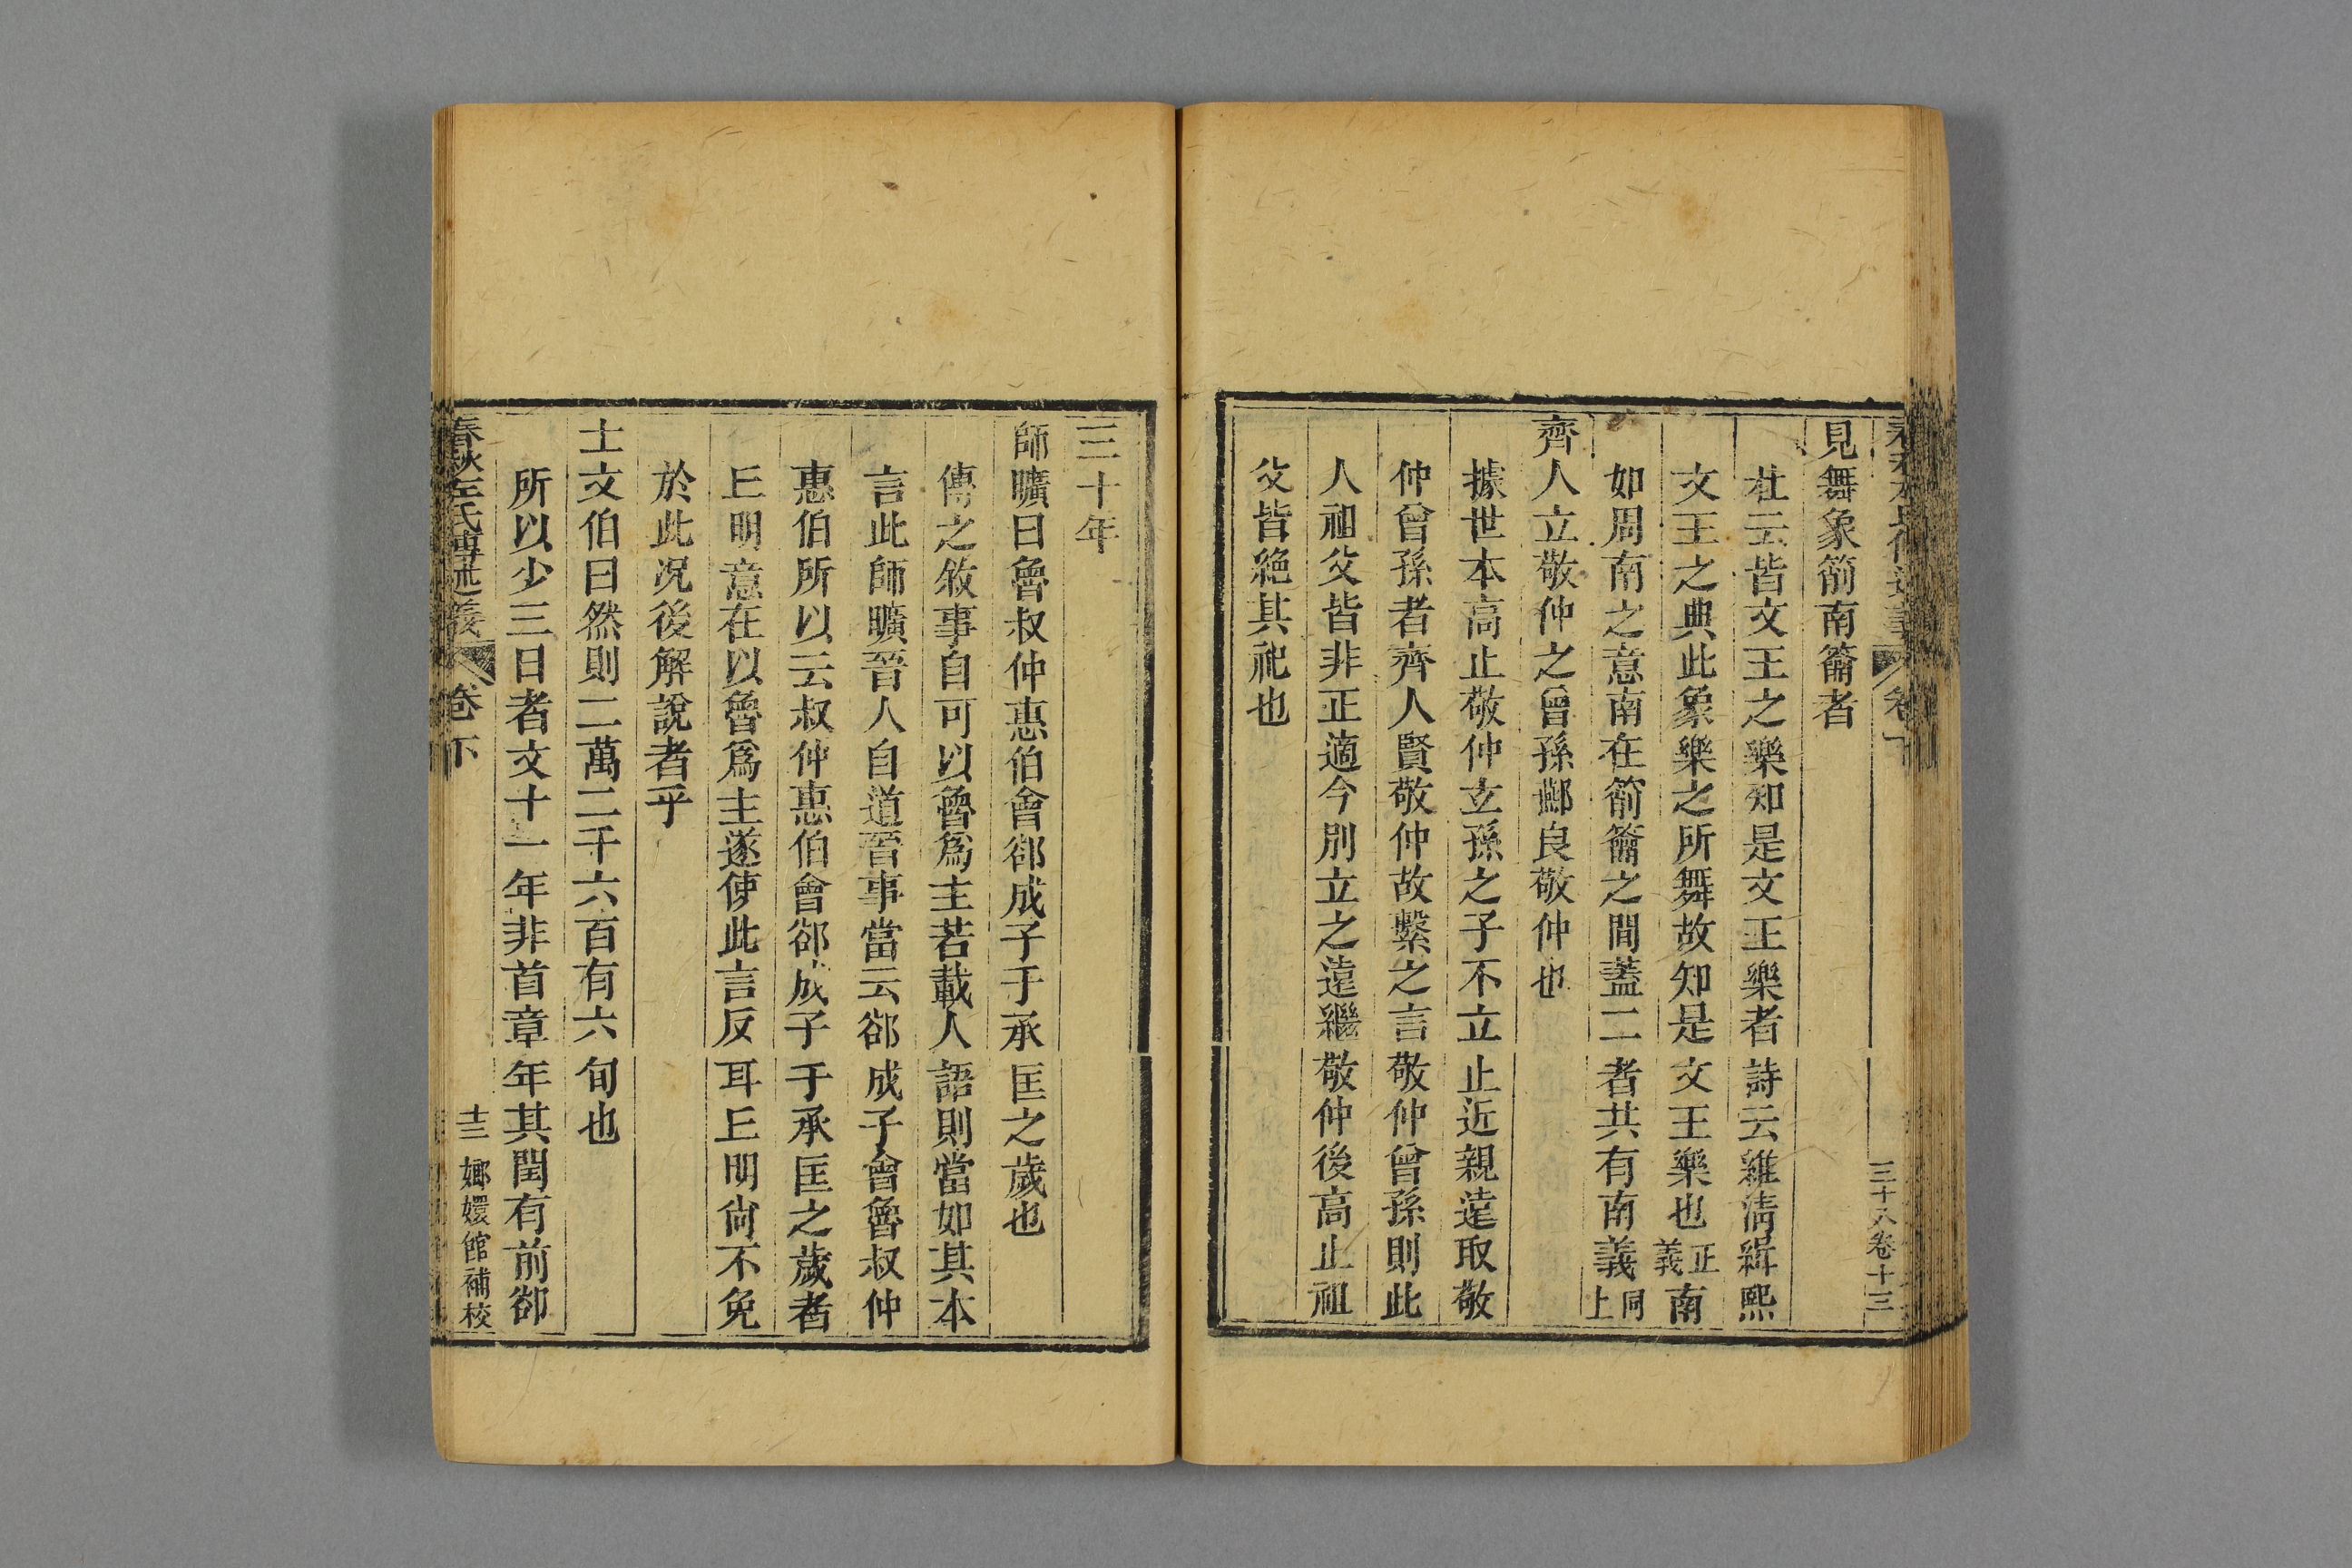 三十八卷十三
見舞象箾南籥者
杜云皆文王之樂知是文王樂者詩云維淸緝熙
文王之典此象樂之所舞故知是文王樂也正義南
如周南之意南在箾籥之間蓋二者共有南義同上
齊人立敬仲之曾孫酀良敬仲也
據世本高止敬仲玄孫之子不立止近親遠取敬
仲曾孫者齊人賢敬仲故繫之言敬仲曾孫則此
人祖父皆非正適今別立之遠繼敬仲後高止祖
父皆絶其祀也
三十年
師曠曰魯叔仲惠伯會郤成子于承匡之歲也
傳之敘事自可以魯爲主若載人語則當如其本
言此師曠晉人自道晉事當云郤成子會魯叔仲
惠伯所以云叔仲惠伯會郤成子于承匡之歲者
丘明意在以魯爲主遂使此言反耳丘明尙不免
於此况後解說者乎
士文伯曰然則二萬二千六百有六旬也
所以少三日者文十一年非首章年其閏有前卻
春秋左氏傳述義 卷下 十三 嫏嬛館補校